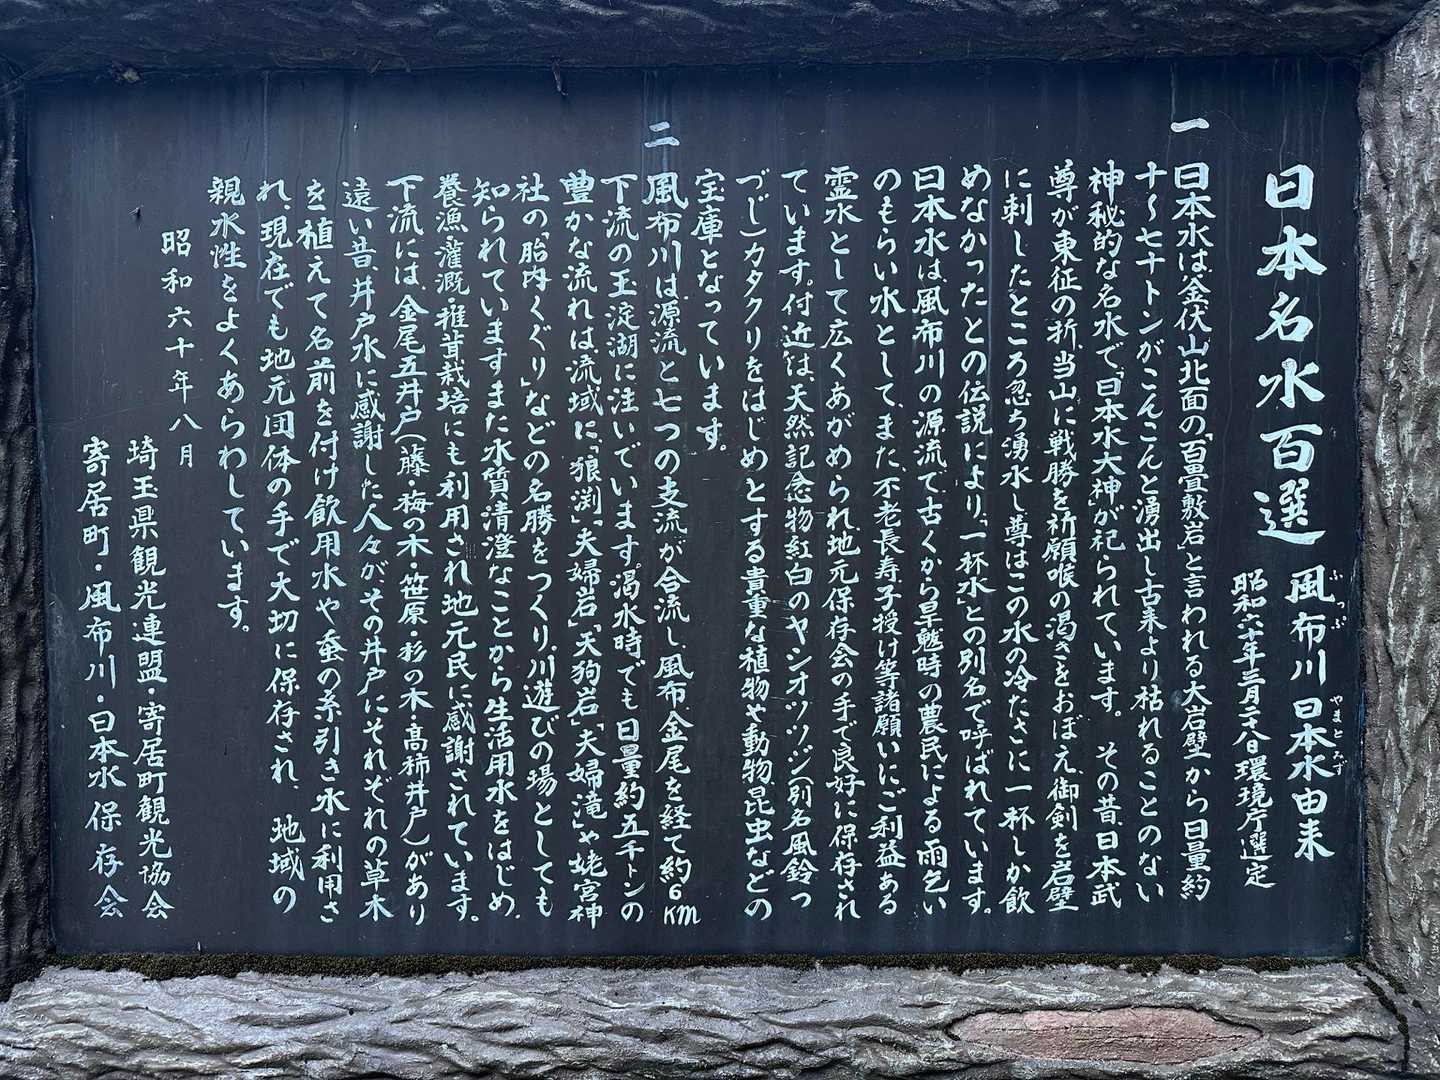 日本名水百選 風布川日本水由来
ふっぷ やまとみず
昭和六十年三月二十八日環境庁選定
一 日本水は、釜伏山北面の「百畳敷岩」と言われる大岩壁から日量約
十〜七十トンがこんこんと湧出し古来より枯れることのない
神秘的な名水で「日本水大神」が祀られています。その昔、日本武
尊が東征の折、当山に戦勝を祈願喉の渇きをおぼえ、御剣を岩壁
に刺したところ忽ち湧水し、尊はこの水の冷たさに一杯しか飲
めなかったとの伝説により、「一杯水」との別名で呼ばれています。
日本水は、風布川の源流で古くから旱魃時の農民による雨乞い
のもらい水として、また、不老長寿、子授け等諸願いにご利益ある
霊水として広くあがめられ、地元保存会の手で良好に保存され
ています。付近は、天然記念物紅白のヤシオツツジ(別名風鈴つ
づじ)カタクリをはじめとする貴重な植物や動物、昆虫などの
宝庫となっています。
二 風布川は、源流と七つの支流が合流し、風布、金尾を経て約6km
下流の玉淀湖に注いでいます。渇水時でも日量約五千トンの
豊かな流れは、流域に「狼渕」、「夫婦岩」、「天狗岩」、「夫婦滝」や姥宮神
社の「胎内くぐり」などの名勝をつくり、川遊びの場としても
知られています。また水質清澄なことから生活用水をはじめ、
養漁、灌漑・椎茸栽培にも利用され地元民に感謝されています。
下流には、金尾五井戸(藤・梅の木・笹原・杉の木・高柿井戸)があり
遠い昔、井戸水に感謝した人々が、その井戸にそれぞれの草木
を植えて名前を付け飲用水や蚕の糸引き水に利用さ
れ、現在でも地元団体の手で大切に保存され、地域の
親水性をよくあらわしています。
昭和六十年八月
埼玉県観光連盟・寄居町観光協会
寄居町・風布川・日本水保存会